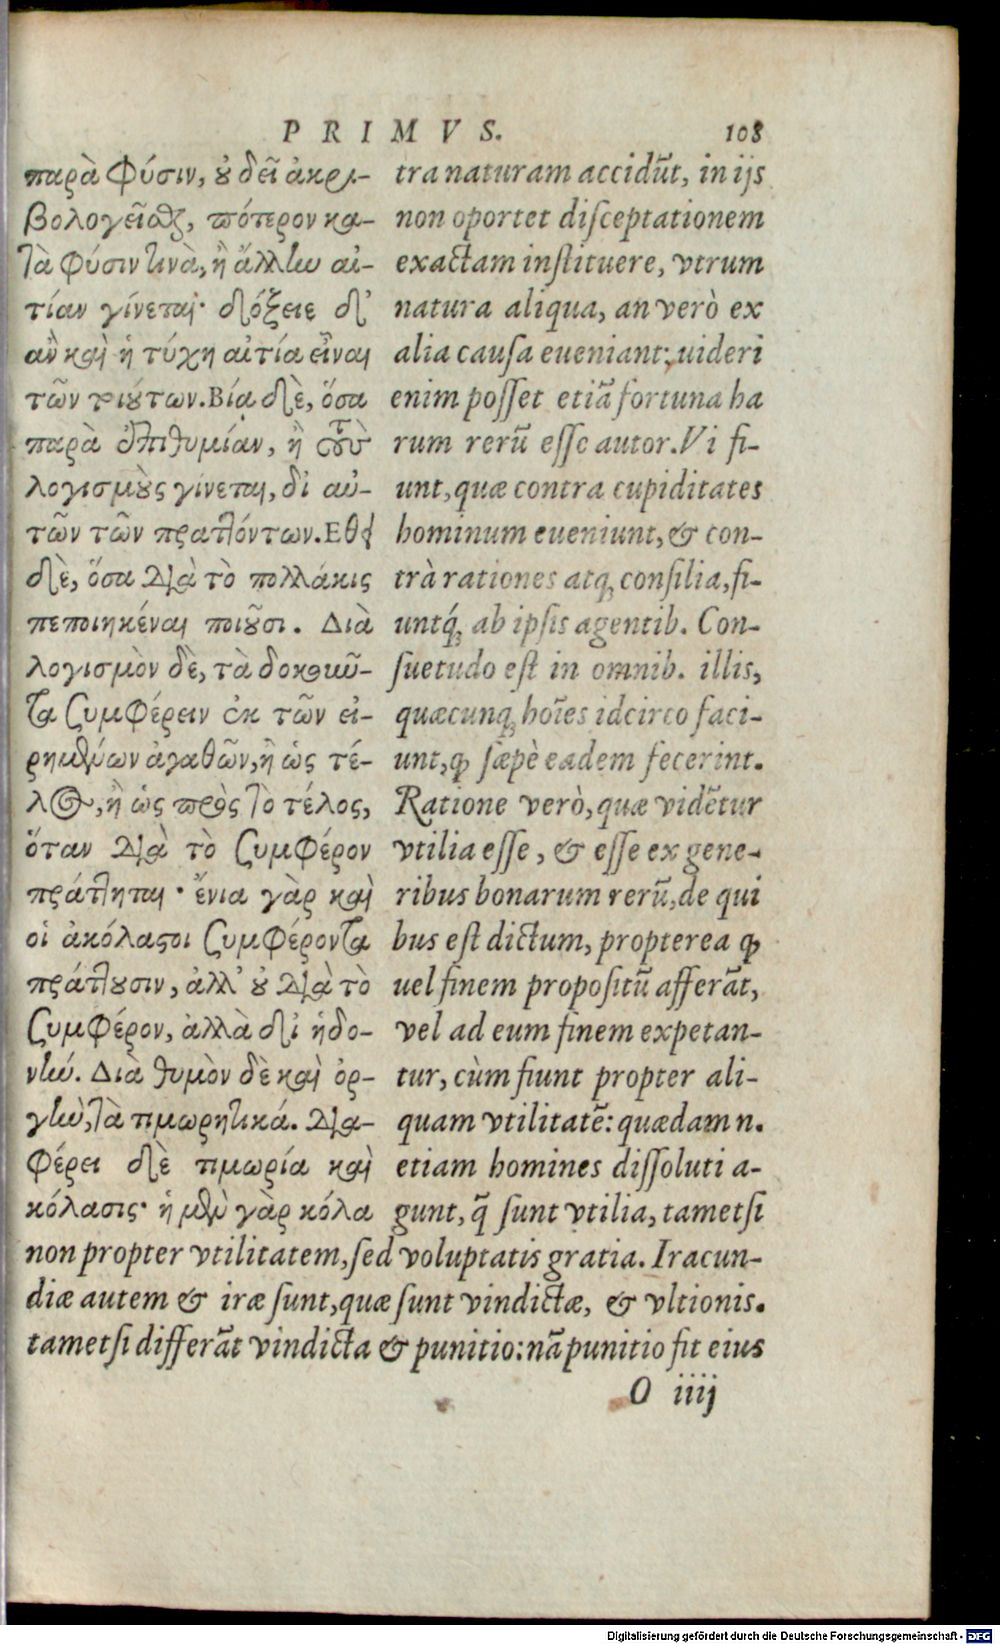 PRIMVS. 108
παρὰ φύσιν, ȣ̓ δεῖ ἀκρι-
βολογεῖσθαι, πότερον κα-
τὰ φύσιν τινὰ, ἢ ἄλλην αἰ-
τίαν γίνεται· δόξειε δ'
ἂν καὶ ἡ τύχη αἰτία εἶναι
τῶν τοιȣ́των. Βία δὲ, ὅσα
παρὰ ἐπιθυμίαν, ἢ τȣ̀ς
λογισμȣ̀ς γίνεται, δι αὐ-
τῶν τῶν πραττόντων. Εθει
δὲ, ὅσα διὰ τὸ πολλάκις
πεποιηκέναι ποιȣ͂σι. Διὰ
λογισμὸν δὲ, τὰ δοκȣ͂ν-
τα συμφέρειν ἐκ τῶν εἰ-
ρημένων ἀγαθῶν, ἢ ὡς τέ-
λος, ἢ ὡς πρὸς τὸ τέλος,
ὅταν διὰ τὸ συμφέρον
πράττηται· ἔνια γὰρ καὶ
οἱ ἀκόλαστοι συμφέροντα
πράττȣσιν, ἀλλ' ȣ̓ διὰ τὸ
συμφέρον, ἀλλὰ δι ἡδο-
νήν. Διὰ θυμὸν δὲ καὶ ὀρ-
γὴν, τὰ τιμωρητικά. Δια-
φέρει δὲ τιμωρία καὶ
κόλασις· ἡ μὲν γὰρ κόλα
tra naturam accidūt, in ijs
non oportet disceptationem
exactam instituere, vtrum
natura aliqua, an verò ex
alia causa eueniant: uideri
enim posset etiā fortuna ha
rum rerū esse autor. Vi fi-
unt, quæ contra cupiditates
hominum eueniunt, & con-
trà rationes atq; consilia, fi-
untq́; ab ipsis agentib. Con-
suetudo est in omnib. illis,
quæcunq; hoīes idcirco faci-
unt, ꝙ sæpè eadem fecerint.
Ratione verò, quæ vidētur
vtilia esse, & esse ex gene-
ribus bonarum rerū, de qui
bus est dictum, propterea ꝙ
uel finem propositū afferāt,
vel ad eum finem expetan-
tur, cùm fiunt propter ali-
quam vtilitatē: quædam n.
etiam homines dissoluti a-
gunt, q̄ sunt vtilia, tametsi
non propter vtilitatem, sed voluptatis gratia. Iracun-
diæ autem & iræ sunt, quæ sunt vindictæ, & vltionis.
tametsi differāt vindicta & punitio: nā punitio fit eius
O iiij
Digitalisierung gefördert durch die Deutsche Forschungsgemeinschaft - DFG